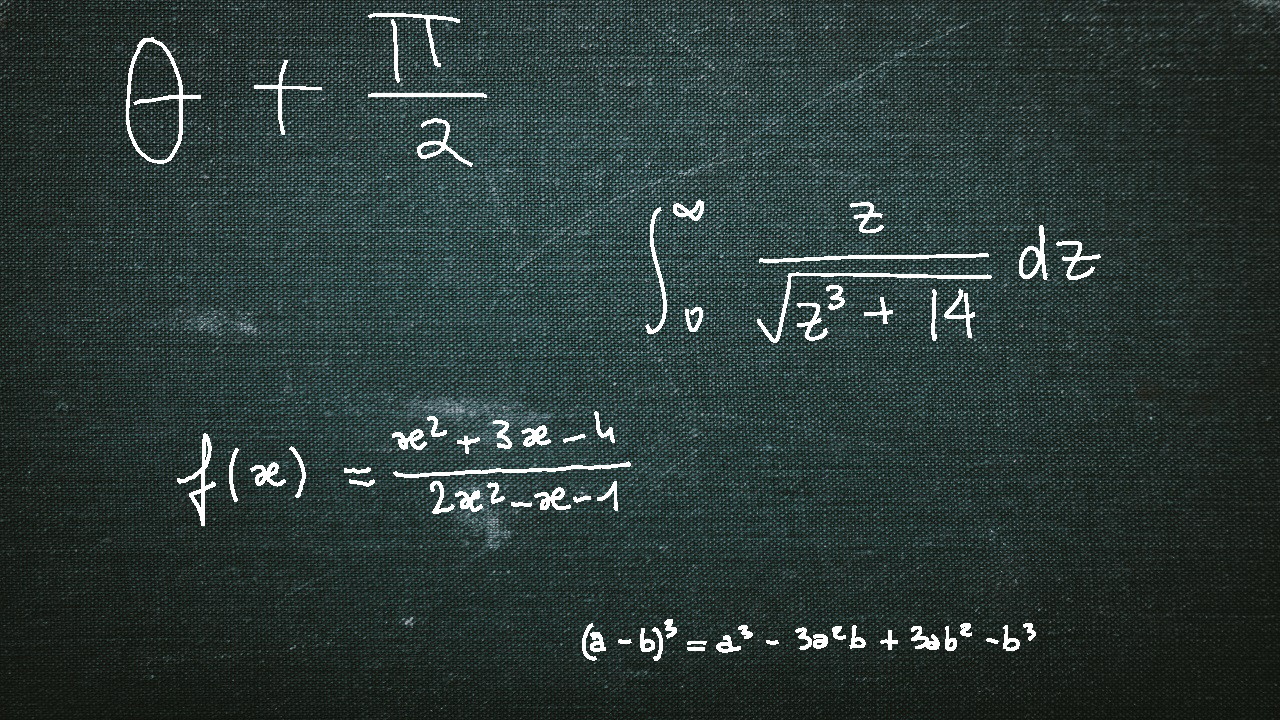 θ + π/2
∫₀^∞ z/√(z³ + 14) dz
f(x) = (x² + 3x - 4)/(2x² - x - 1)
(a - b)³ = a³ - 3a²b + 3ab² - b³